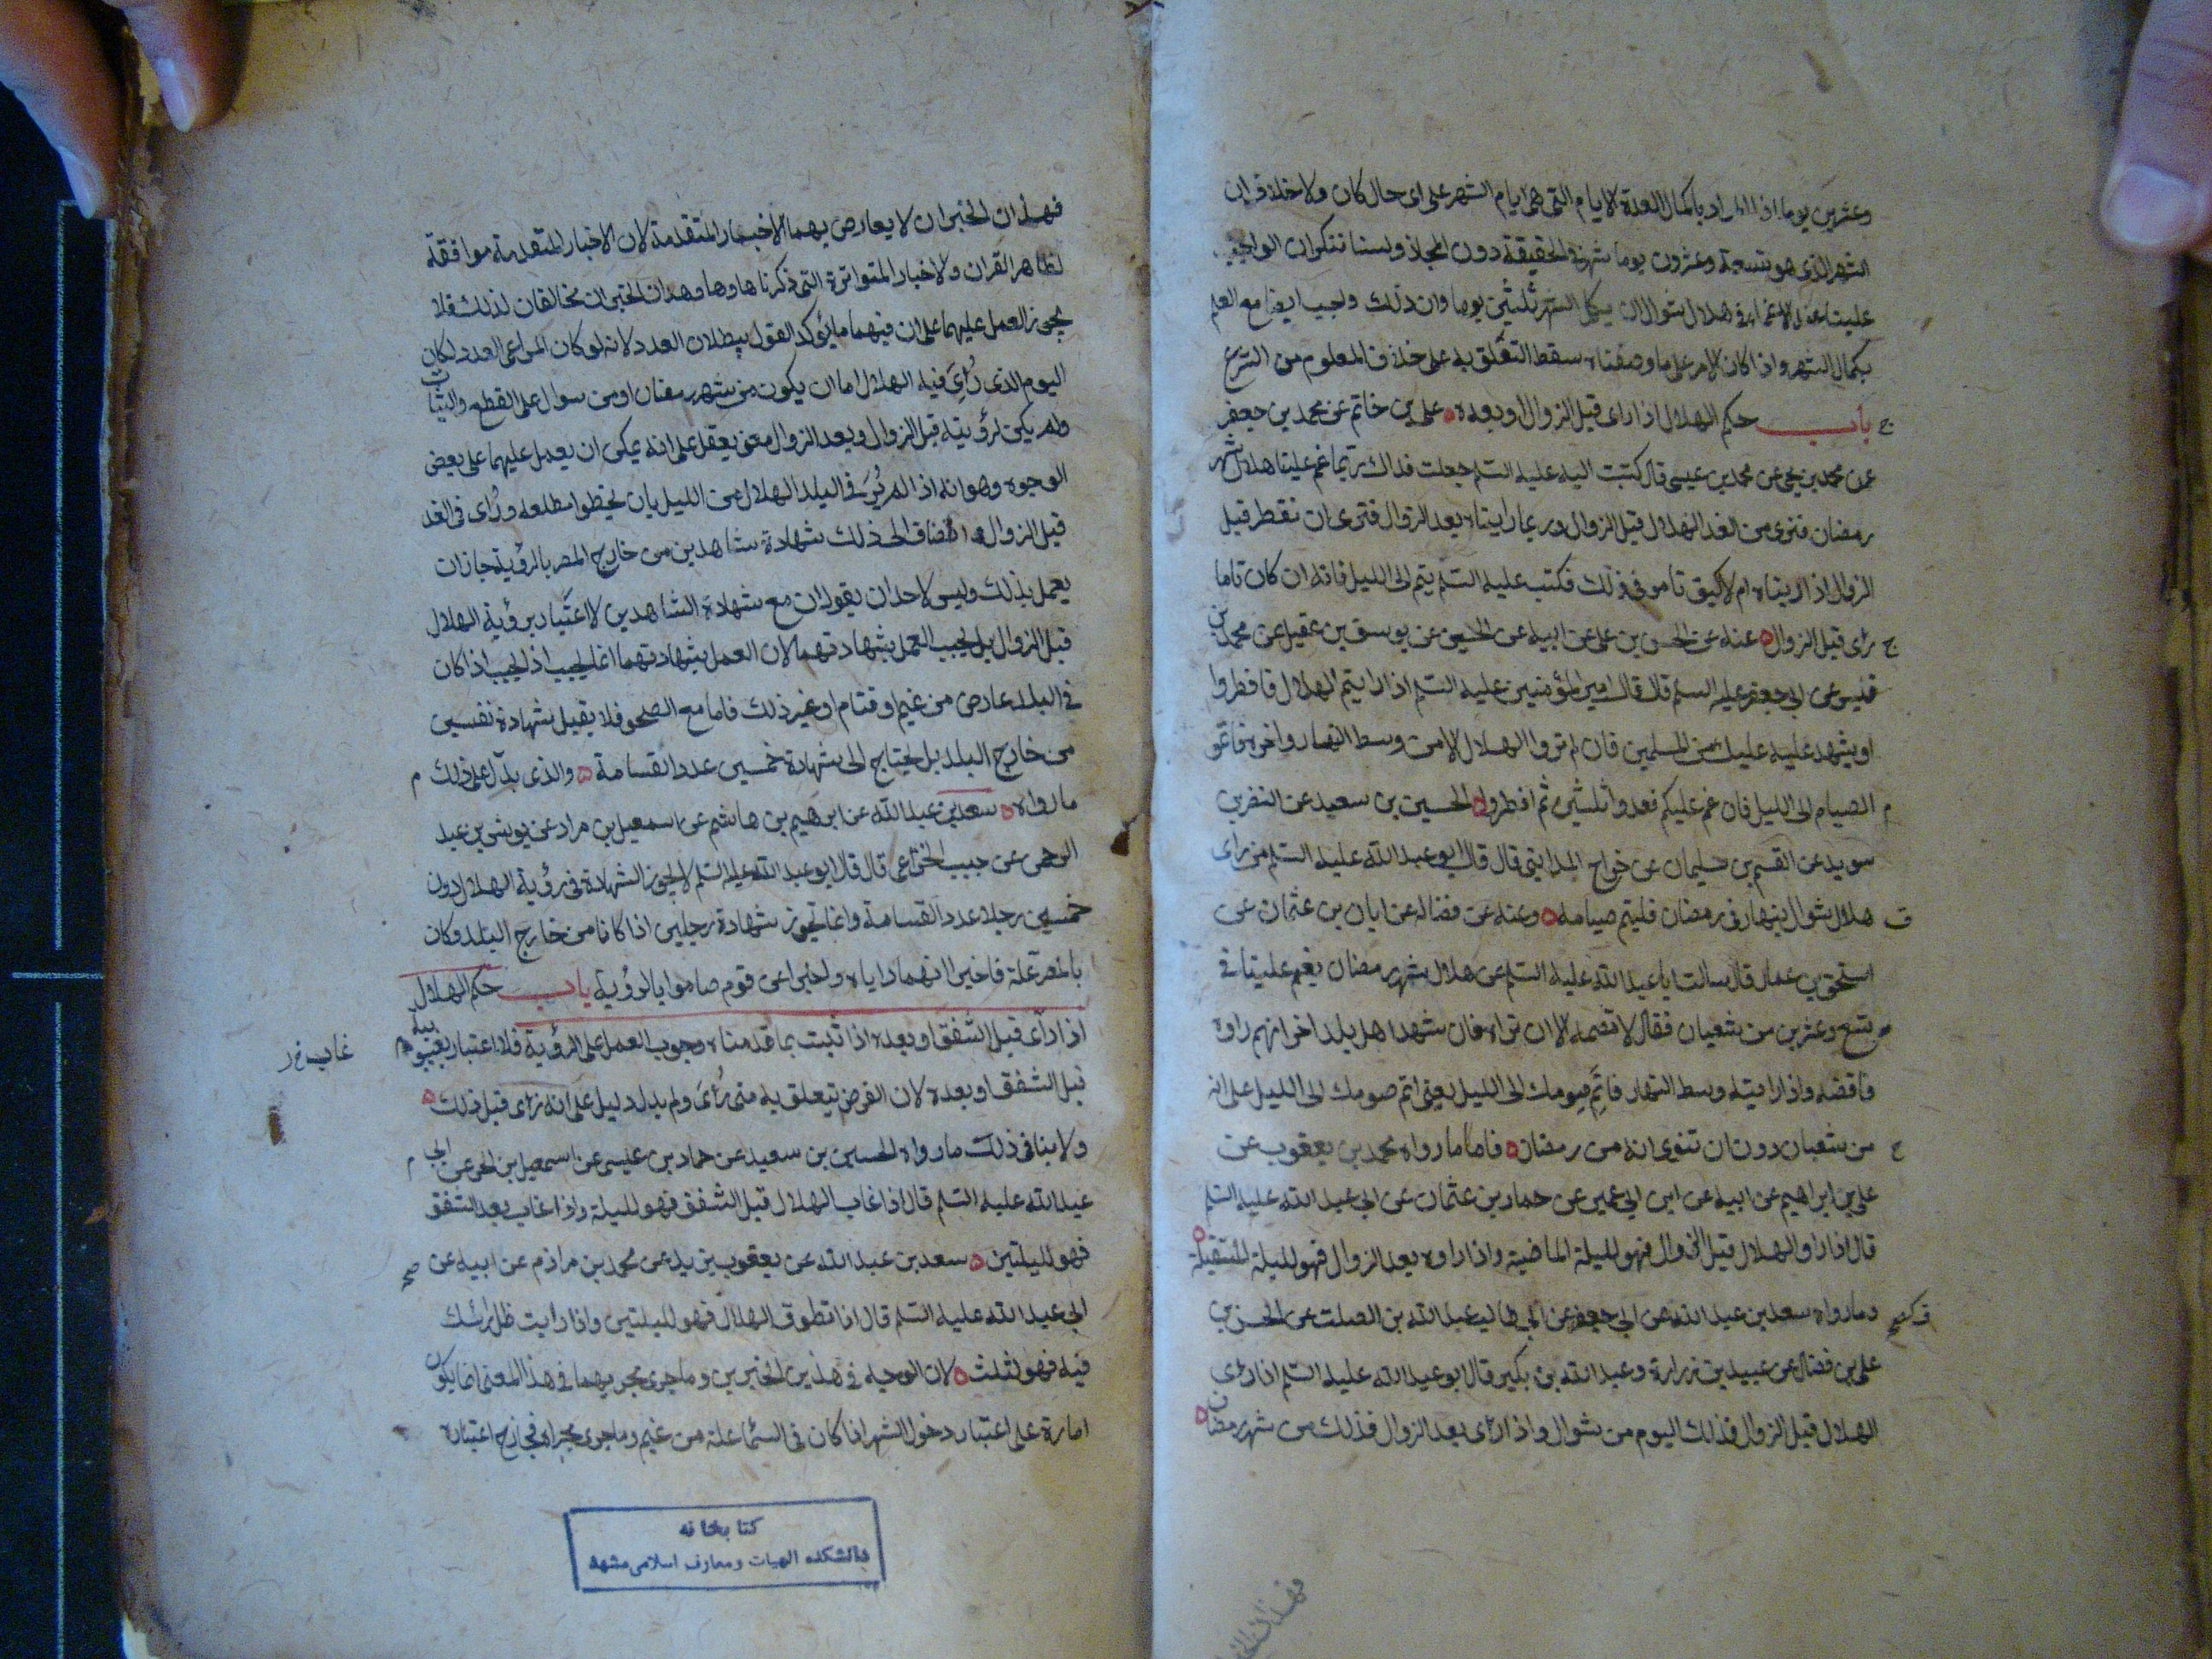 وعشرين يوما اذ المراد باكمال العدة لايام التي هي ايام الشهر على اى حال كان ولا خلاف ان
الشهر الذى هو تسعة وعشرون يوما شهر في الحقيقة دون المجاز ولسنا ننكر ان الواجب
علينا عند الاغماء في هلال شوال ان يكمل الشهر ثلثين يوما وان ذلك واجب ايضا مع العلم
بكمال الشهر واذا كان الامر على ما وصفناه سقط التعلق به على خلاف المعلوم من الشرع
باب حكم الهلال اذا راى قبل الزوال او بعده علي بن حاتم عن محمد بن جعفر
عن محمد بن يحيى عن محمد بن عيسى قال كتبت اليه عليه السلم جعلت فداك ربما غم علينا هلال شهر
رمضان فنرى من الغد الهلال قبل الزوال وربما رايناه بعد الزوال فترى ان نفطر قبل
الزوال اذا رايناه ام لا وكيف تامر في ذلك فكتب عليه السلم يتم الى الليل فانه ان كان تاما
راى قبل الزوال عنه عن الحسن بن على عن ابيه عن الحسين عن يوسف بن عقيل عن محمد بن
قيس عن ابي جعفر عليه السلم قال قال امير المؤمنين عليه السلم اذا رايتم الهلال فافطروا
او يشهد عليه عليكم من المسلمين فان لم تروا الهلال الا من وسط النهار او اخره فاتموا
الصيام الى الليل فان غم عليكم فعدوا ثلثين ثم افطروا الحسين بن سعيد عن النضر بن
سويد عن القسم بن سليمان عن جراح المدايني قال قال ابو عبد الله عليه السلم من راى
هلال شوال بنهار في رمضان فليتم صيامه وعنه عن فضاله عن ابان بن عثمان عن
اسحق بن عمار قال سالت ابا عبد الله عليه السلم عن هلال شهر رمضان يغم علينا في
تسع وعشرين من شعبان فقال لا تصمه الا ان تراه فان شهد اهل بلد اخر انهم راوه
فاقضه واذا رايته وسط النهار فاتم صومك الى الليل يعنى اتم صومك الى الليل على انه
من شعبان دون ان تنوى انه من رمضان فاما ما رواه محمد بن يعقوب عن
على بن ابراهيم عن ابيه عن ابن ابي عمير عن حماد بن عثمان عن ابي عبد الله عليه السلم
قال اذا راوا الهلال قبل الزوال فهو لليلة الماضية واذا راوه بعد الزوال فهو لليلة المستقبلة
وما رواه سعد بن عبد الله عن ابي جعفر عن ابي طالب عبد الله بن الصلت عن الحسن بن
على بن فضال عن عبيد بن زرارة وعبد الله بن بكير قال ابو عبد الله عليه السلم اذا رؤى
الهلال قبل الزوال فذلك اليوم من شوال واذا راى بعد الزوال فذلك من شهر رمضان
فهذان الخبران لا يعارض بهما الاخبار المتقدمة لان الاخبار المتقدمة موافقة
لظاهر القران والاخبار المتواترة التي ذكرناها وهذان الخبران مخالفان لذلك فلا
يجوز العمل عليهما على ان فيهما ما يؤكد القول ببطلان العدد لانه لو كان المراعى العدد لكان
اليوم الذى رأى فيه الهلال اما ان يكون من شهر رمضان او من سوال على القطع والثبات
ولم يكن لرؤيته قبل الزوال وبعد الزوال معنى يعقل على انه يمكن ان يعمل عليهما على بعض
الوجوه وهو انه اذا لم يُرَ في البلد الهلال من الليل بان يخطوا مطلعه ورُاى في الغد
قبل الزوال واضاف الى ذلك شهادة شاهدين من خارج المصر بالرؤية جاز ان
يعمل بذلك وليس لاحد ان يقول ان مع شهادة الشاهدين لا اعتبار برؤية الهلال
قبل الزوال بل يجب العمل بشهادتهما لان العمل بشهادتهما انما يجب اذا كان
في البلد عارض من غيم او قتام او غير ذلك فاما مع الصحو فلا يقبل شهادة نفسين
من خارج البلد بل يحتاج الى شهادة خمسين عدد القسامة والذى يدل على ذلك
ما رواه سعد بن عبد الله عن ابرهيم بن هاشم عن اسمعيل بن مراد عن يونس بن عبد
الرحمن عن حبيب الخزاعى قال قال ابو عبد الله عليه السلم لا يجوز الشهادة في رؤية الهلال دون
خمسين رجلا عدد القسامة وانما تجوز شهادة رجلين اذا كانا من خارج البلد وكان
بالمصر علة فاخبرا انهما راياه واخبرا عن قوم صاموا بالرؤية باب حكم الهلال
اذا رأى قبل الشفق او بعده اذا ثبت بما قدمناه وجوب العمل على الرؤية فلا اعتبار بغيبوبته
غاب خ ر
قبل الشفق او بعده لان الفرض يتعلق به متى رُأى ولم يدل دليل على انه راى قبل ذلك
ولا ينافى ذلك ما رواه الحسين بن سعيد عن حماد بن عيسى عن اسمعيل بن الحر عن ابي
عبد الله عليه السلم قال اذا غاب الهلال قبل الشفق فهو لليلة واذا غاب بعد الشفق
فهو لليلتين سعد بن عبد الله عن يعقوب بن يزيد عن محمد بن مرازم عن ابيه عن
ابي عبد الله عليه السلم قال اذا تطوق الهلال فهو لليلتين واذا رايت ظل راسك
فيه فهو لثلث لان الوجه في هذين الخبرين وما جرى مجريهما في هذا المعنى انما يكون
امارة على اعتبار دخول الشهر اذا كان في السماء علة من غيم وما جرى مجراه فجاز ح اعتباره
كتابخانه
دانشكده الهيات ومعارف اسلامى مشهد